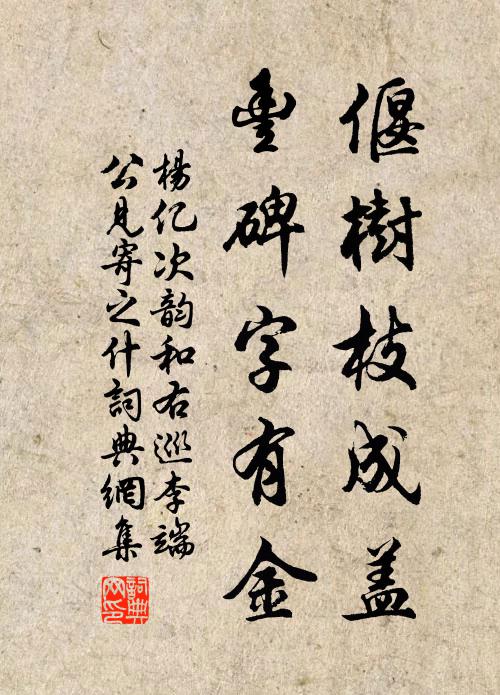 偃樹枝成盖
豊碑字有金
楊亿次韵和右巡李端
公見寄之什詞典網集
詞典
网印